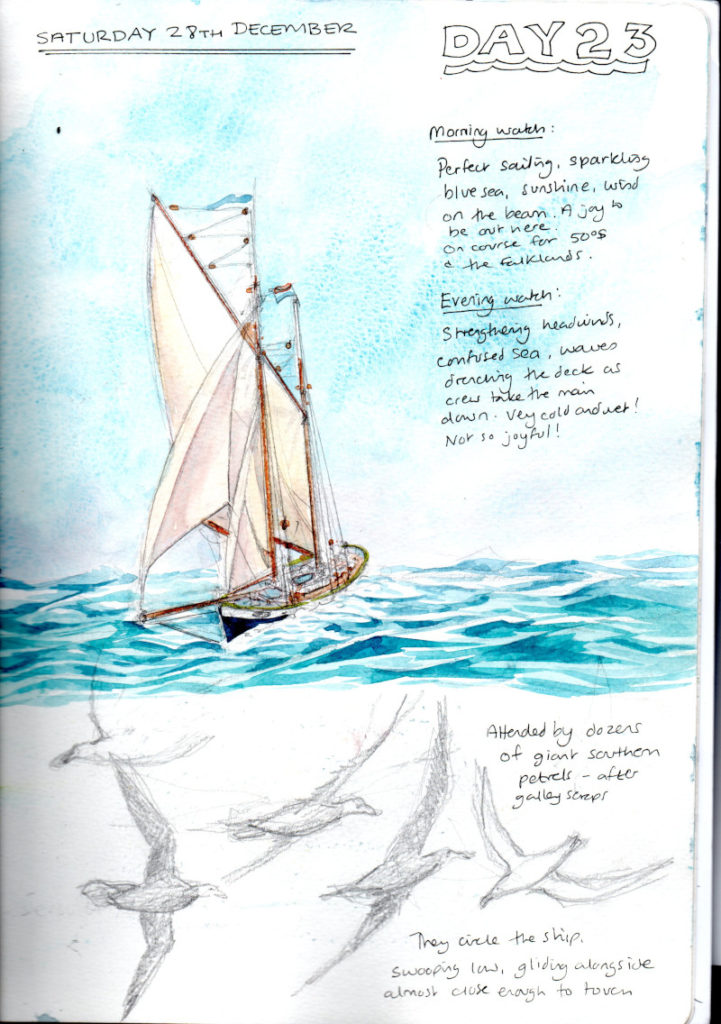 SATURDAY 28TH DECEMBER
DAY 23
Morning watch:
Perfect sailing, sparkling
blue sea, sunshine, wind
on the beam. A joy to
be out here.
On course for 50°S
& the Falklands.
Evening watch:
Strengtheng headwinds,
confused sea, waves
drenching the deck as
crew take the main
down. Very cold and wet!
Not so joyful!
Attended by dozens
of giant southern
petrels - after
galley scraps
They circle the ship,
swooping low, gliding alongside
almost close enough to touch